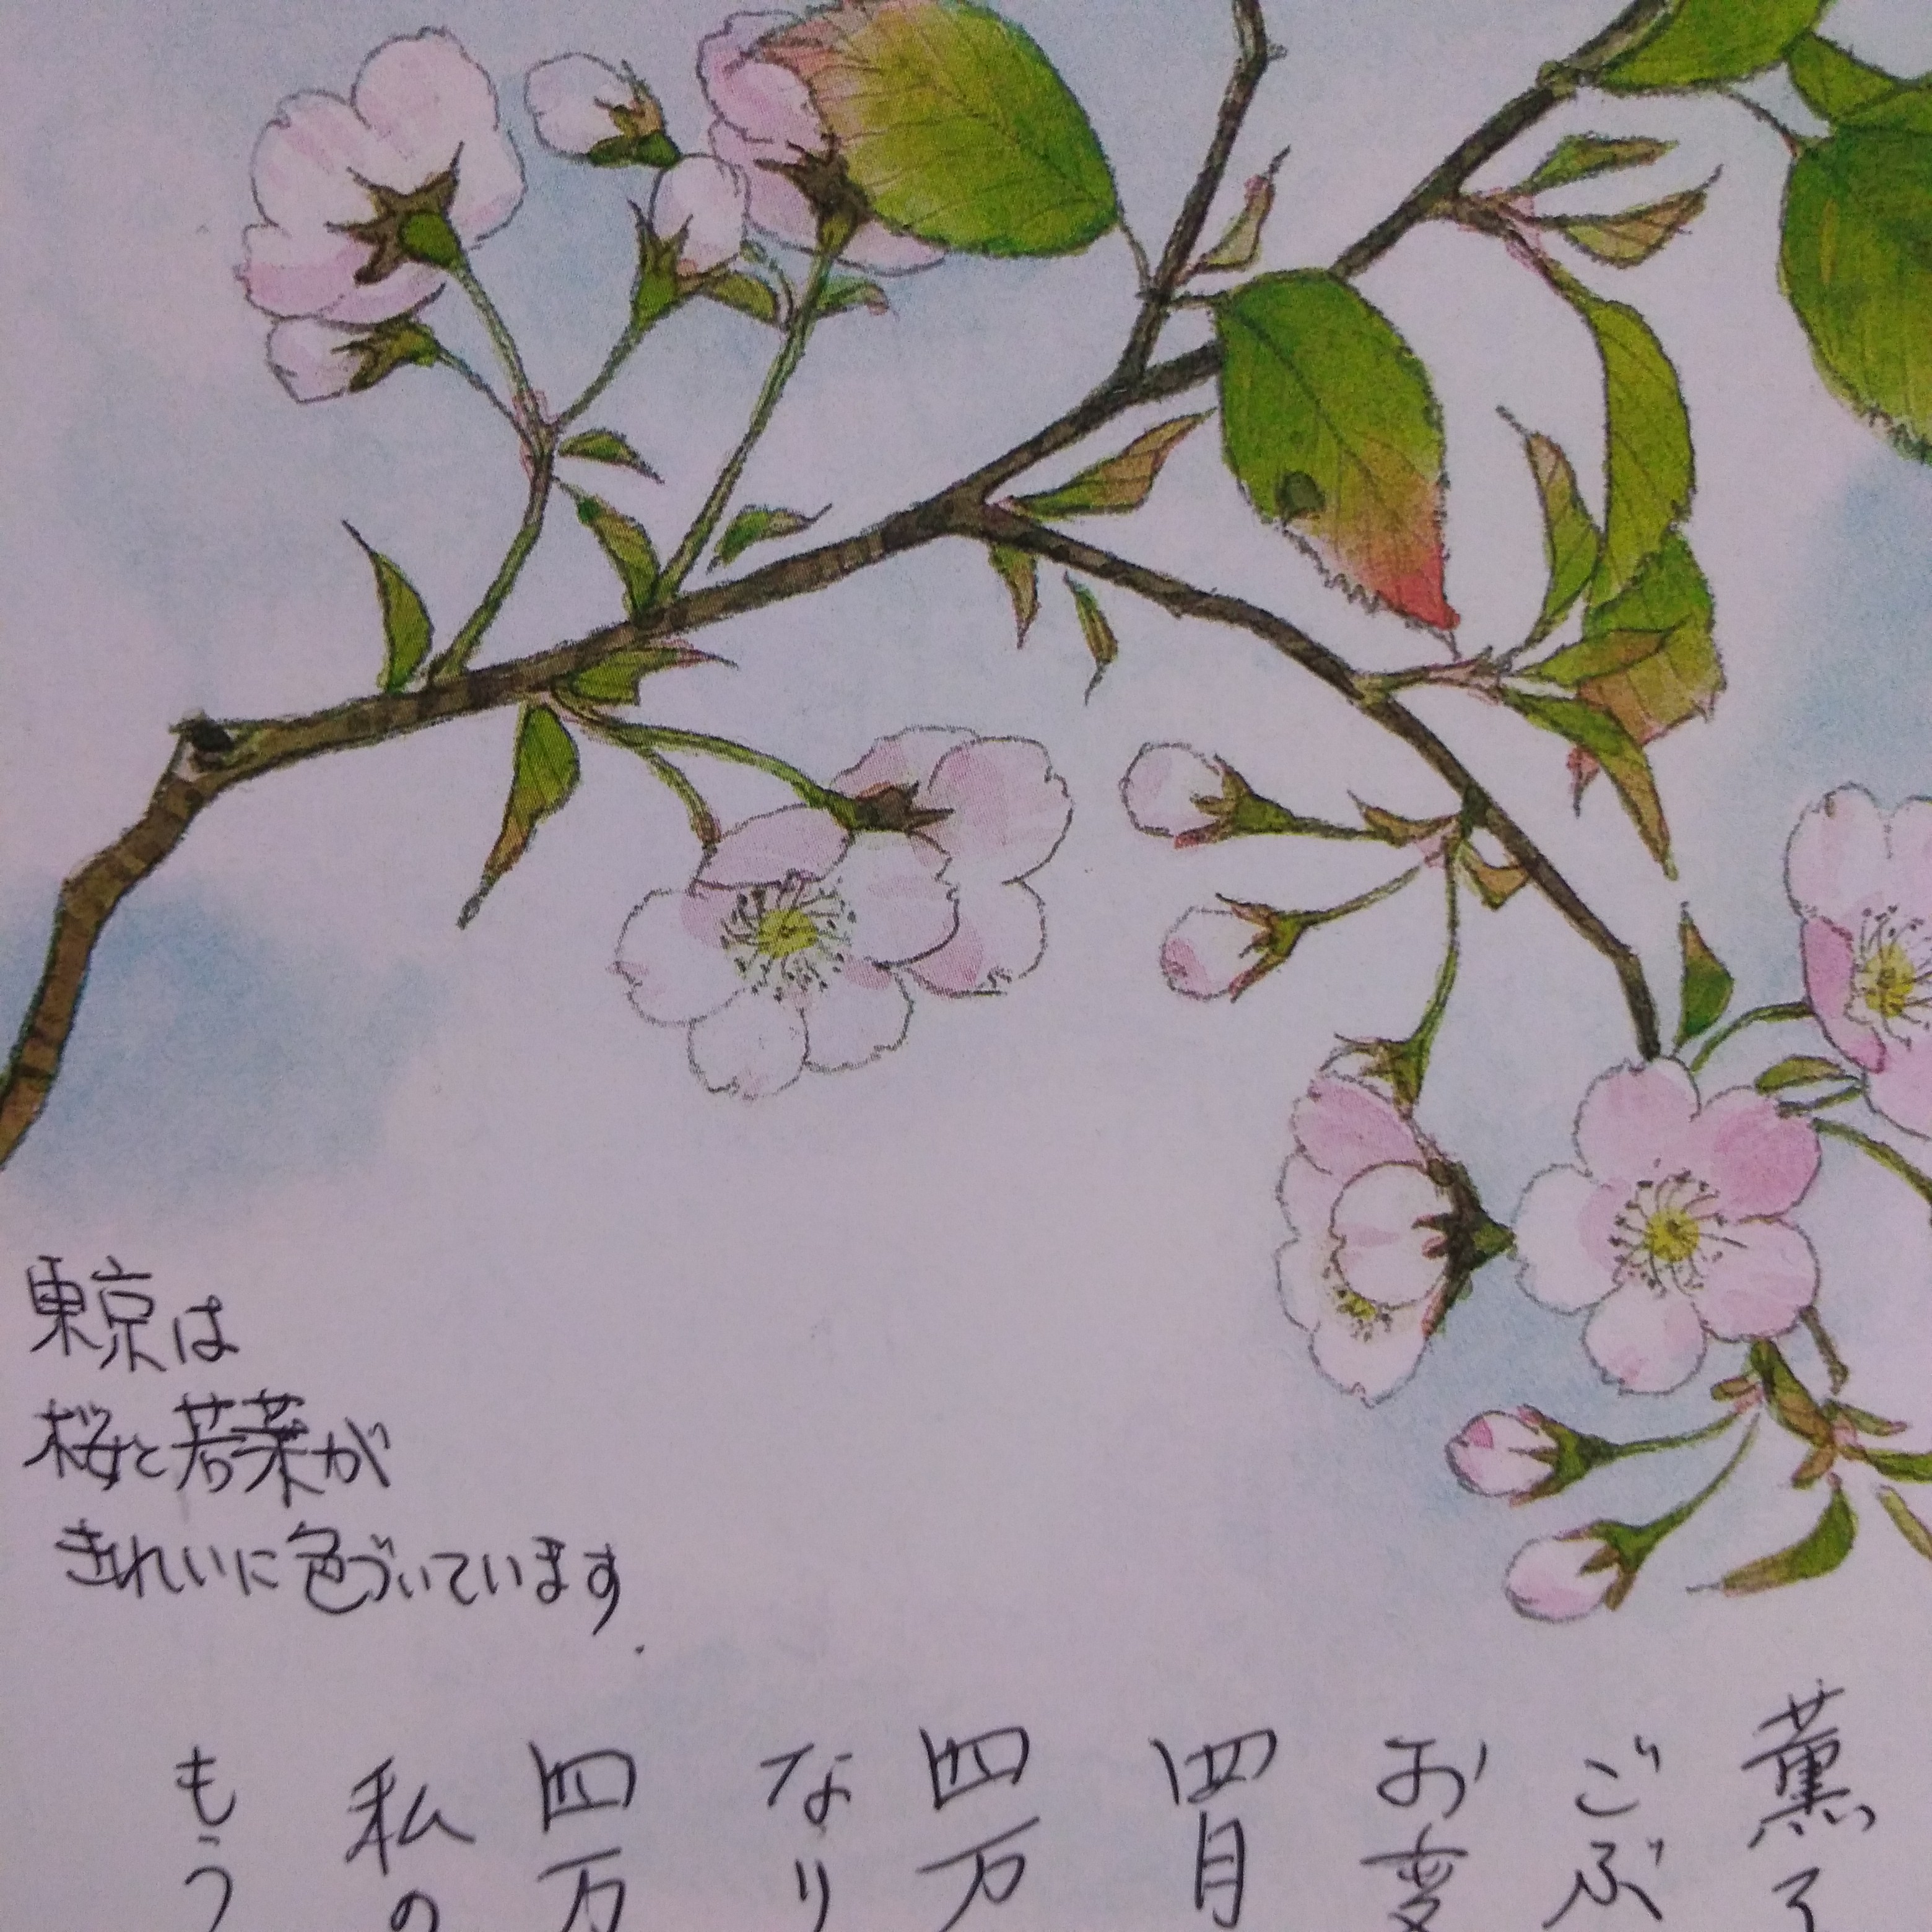 東京は
桜と若葉が
きれいに色づいています.
薫る
ごぶ
お変
四月
四万
なり
四万
私の
もう